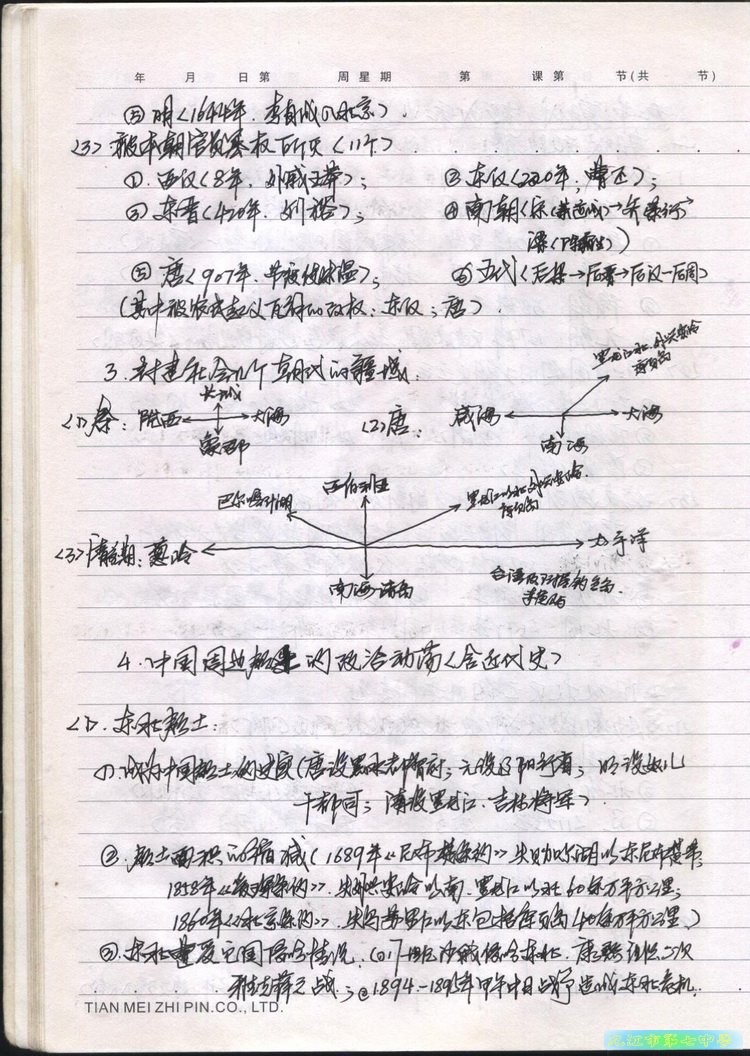 年 月 日第 周星期 第 课第 节(共 节)
⑤ 明〈1644年. 李自成入北京〉.
〈3〉 被本朝官员篡权而亡〈11个〉
①. 西汉〈8年. 外戚王莽〉; ②东汉〈220年; 曹丕〉;
③ 东晋〈420年. 刘裕〉; ④南朝〈宋(萧道成)→齐萧衍→
梁(陈霸先)〉
⑤ 唐〈907年. 节度使朱温〉; ⑥五代〈后梁→后晋→后汉→后周〉
(其中被农民起义瓦解的政权: 东汉; 唐).
3. 封建社会几个朝代的疆域:
长城
〈1〉秦: 陇西 大海 〈2〉唐. 咸海 大海
象郡 南海
黑龙江以北外兴安岭
库页岛
巴尔喀什湖 西伯利亚 黑龙江以北外兴安岭
库页岛
〈3〉清前期: 葱岭 太平洋
南海诸岛 台湾及附属钓鱼岛
赤尾屿
4. 中国周边的政治动荡〈含近代史〉
〈1〉. 东北
① 成为中国的过程(唐设黑水都督府; 元设辽阳行省; 明设奴儿
干都司; 清设黑龙江. 吉林将军).
②. 面积的缩减(1689年《尼布楚条约》失贝加尔湖以东尼布楚等;
1858年《瑷珲条约》. 失外兴安岭以南. 黑龙江以北60多万平方公里;
1860年《北京条约》. 失乌苏里江以东包括库页岛40多万平方公里.)
③. 东北遭受它国侵略情况. ①17世纪沙俄侵略东北. 康熙组织二次
雅克萨之战.; ②1894-1895年甲午中日战争造成东北危机.
TIAN MEI ZHI PIN.CO., LTD.
九江市第七中学